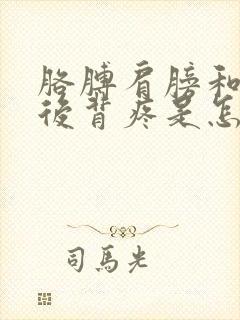 胳膊肩膀和
後背疼是怎
司馬光